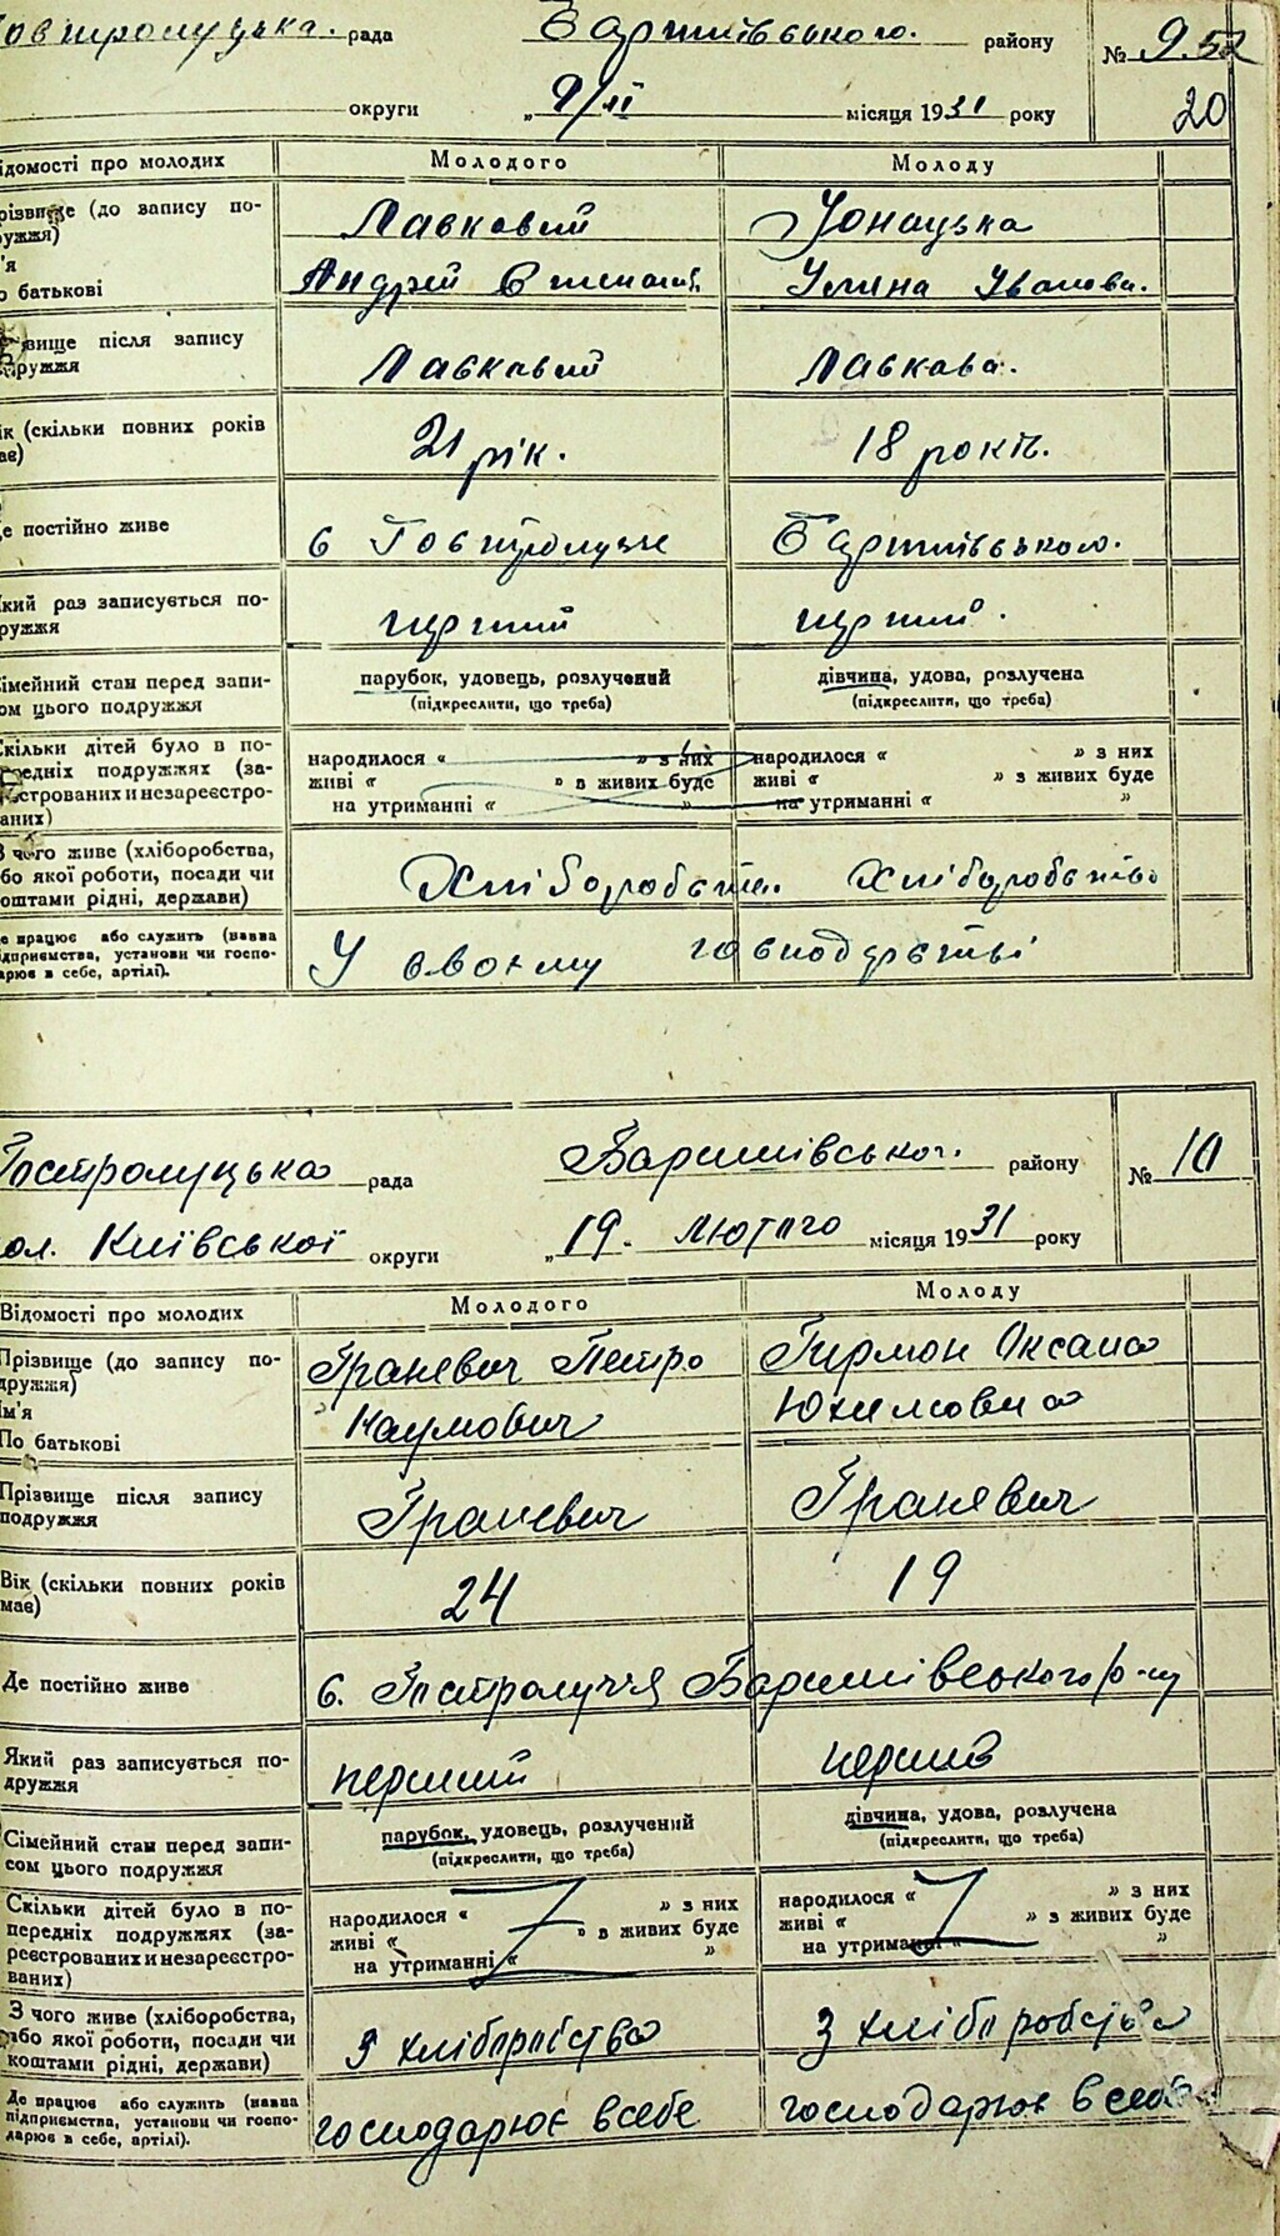 рада Баришівського. району № 9. 52
округи „ 9/II місяця 1931 року 20
ідомості про молодих Молодого Молоду
різвище (до запису по-
ружжя) Лавковий
'я
о батькові Андрій Уляна Іванови.
вище після запису
ружжя Лавковий Лавкова.
ік (скільки повних років
ає) 21 рік. 18 років.
е постійно живе Баришівського.
кий раз записується по-
ружжя перший перший.
імейний стан перед запи-
ом цього подружжя
парубок, удовець, розлучений дівчина, удова, розлучена
(підкреслити, що треба) (підкреслити, що треба)
кільки дітей було в по-
редніх подружжях (за-
єстрованих и незареєстро-
аних)
народилося “ ” з них народилося “ ” з них
живі “ ” в живих буде живі “ ” з живих буде
на утриманні “ ” на утриманні “ ”
З чого живе (хліборобства,
бо якої роботи, посади чи
оштами рідні, держави) Хліборобств. Хліборобство
е працює або служить (назва
ідприємства, установи чи госпо-
арює в себе, артілі). У своєму господарстві
Гостролуцька рада Баришівськог. району № 10
Київської округи „ 19. Лютого місяця 1931 року
Відомості про молодих Молодого Молоду
Прізвище (до запису по-
дружжя) Граневич Петро Гирмон Оксана
Ім'я
По батькові Наумович Юхимовна
Прізвище після запису
подружжя Граневич Граневич
Вік (скільки повних років
має) 24 19
Де постійно живе с. Гостролуччя Баришівського р-ну
Який раз записується по-
дружжя перший перший
Сімейний стан перед запи-
сом цього подружжя
парубок, удовець, розлучений дівчина, удова, розлучена
(підкреслити, що треба) (підкреслити, що треба)
Скільки дітей було в по-
передніх подружжях (за-
реєстрованих и незареєстро-
ваних)
народилося “ ” з них народилося “ ” з них
живі “ ” в живих буде живі “ ” з живих буде
на утриманні “ ” на утриманні “ ”
З чого живе (хліборобства,
або якої роботи, посади чи
коштами рідні, держави) З хліборобства З хліборобства
Де працює або служить (назва
підприємства, установи чи госпо-
дарює в себе, артілі). господарює в себе господарює в себе